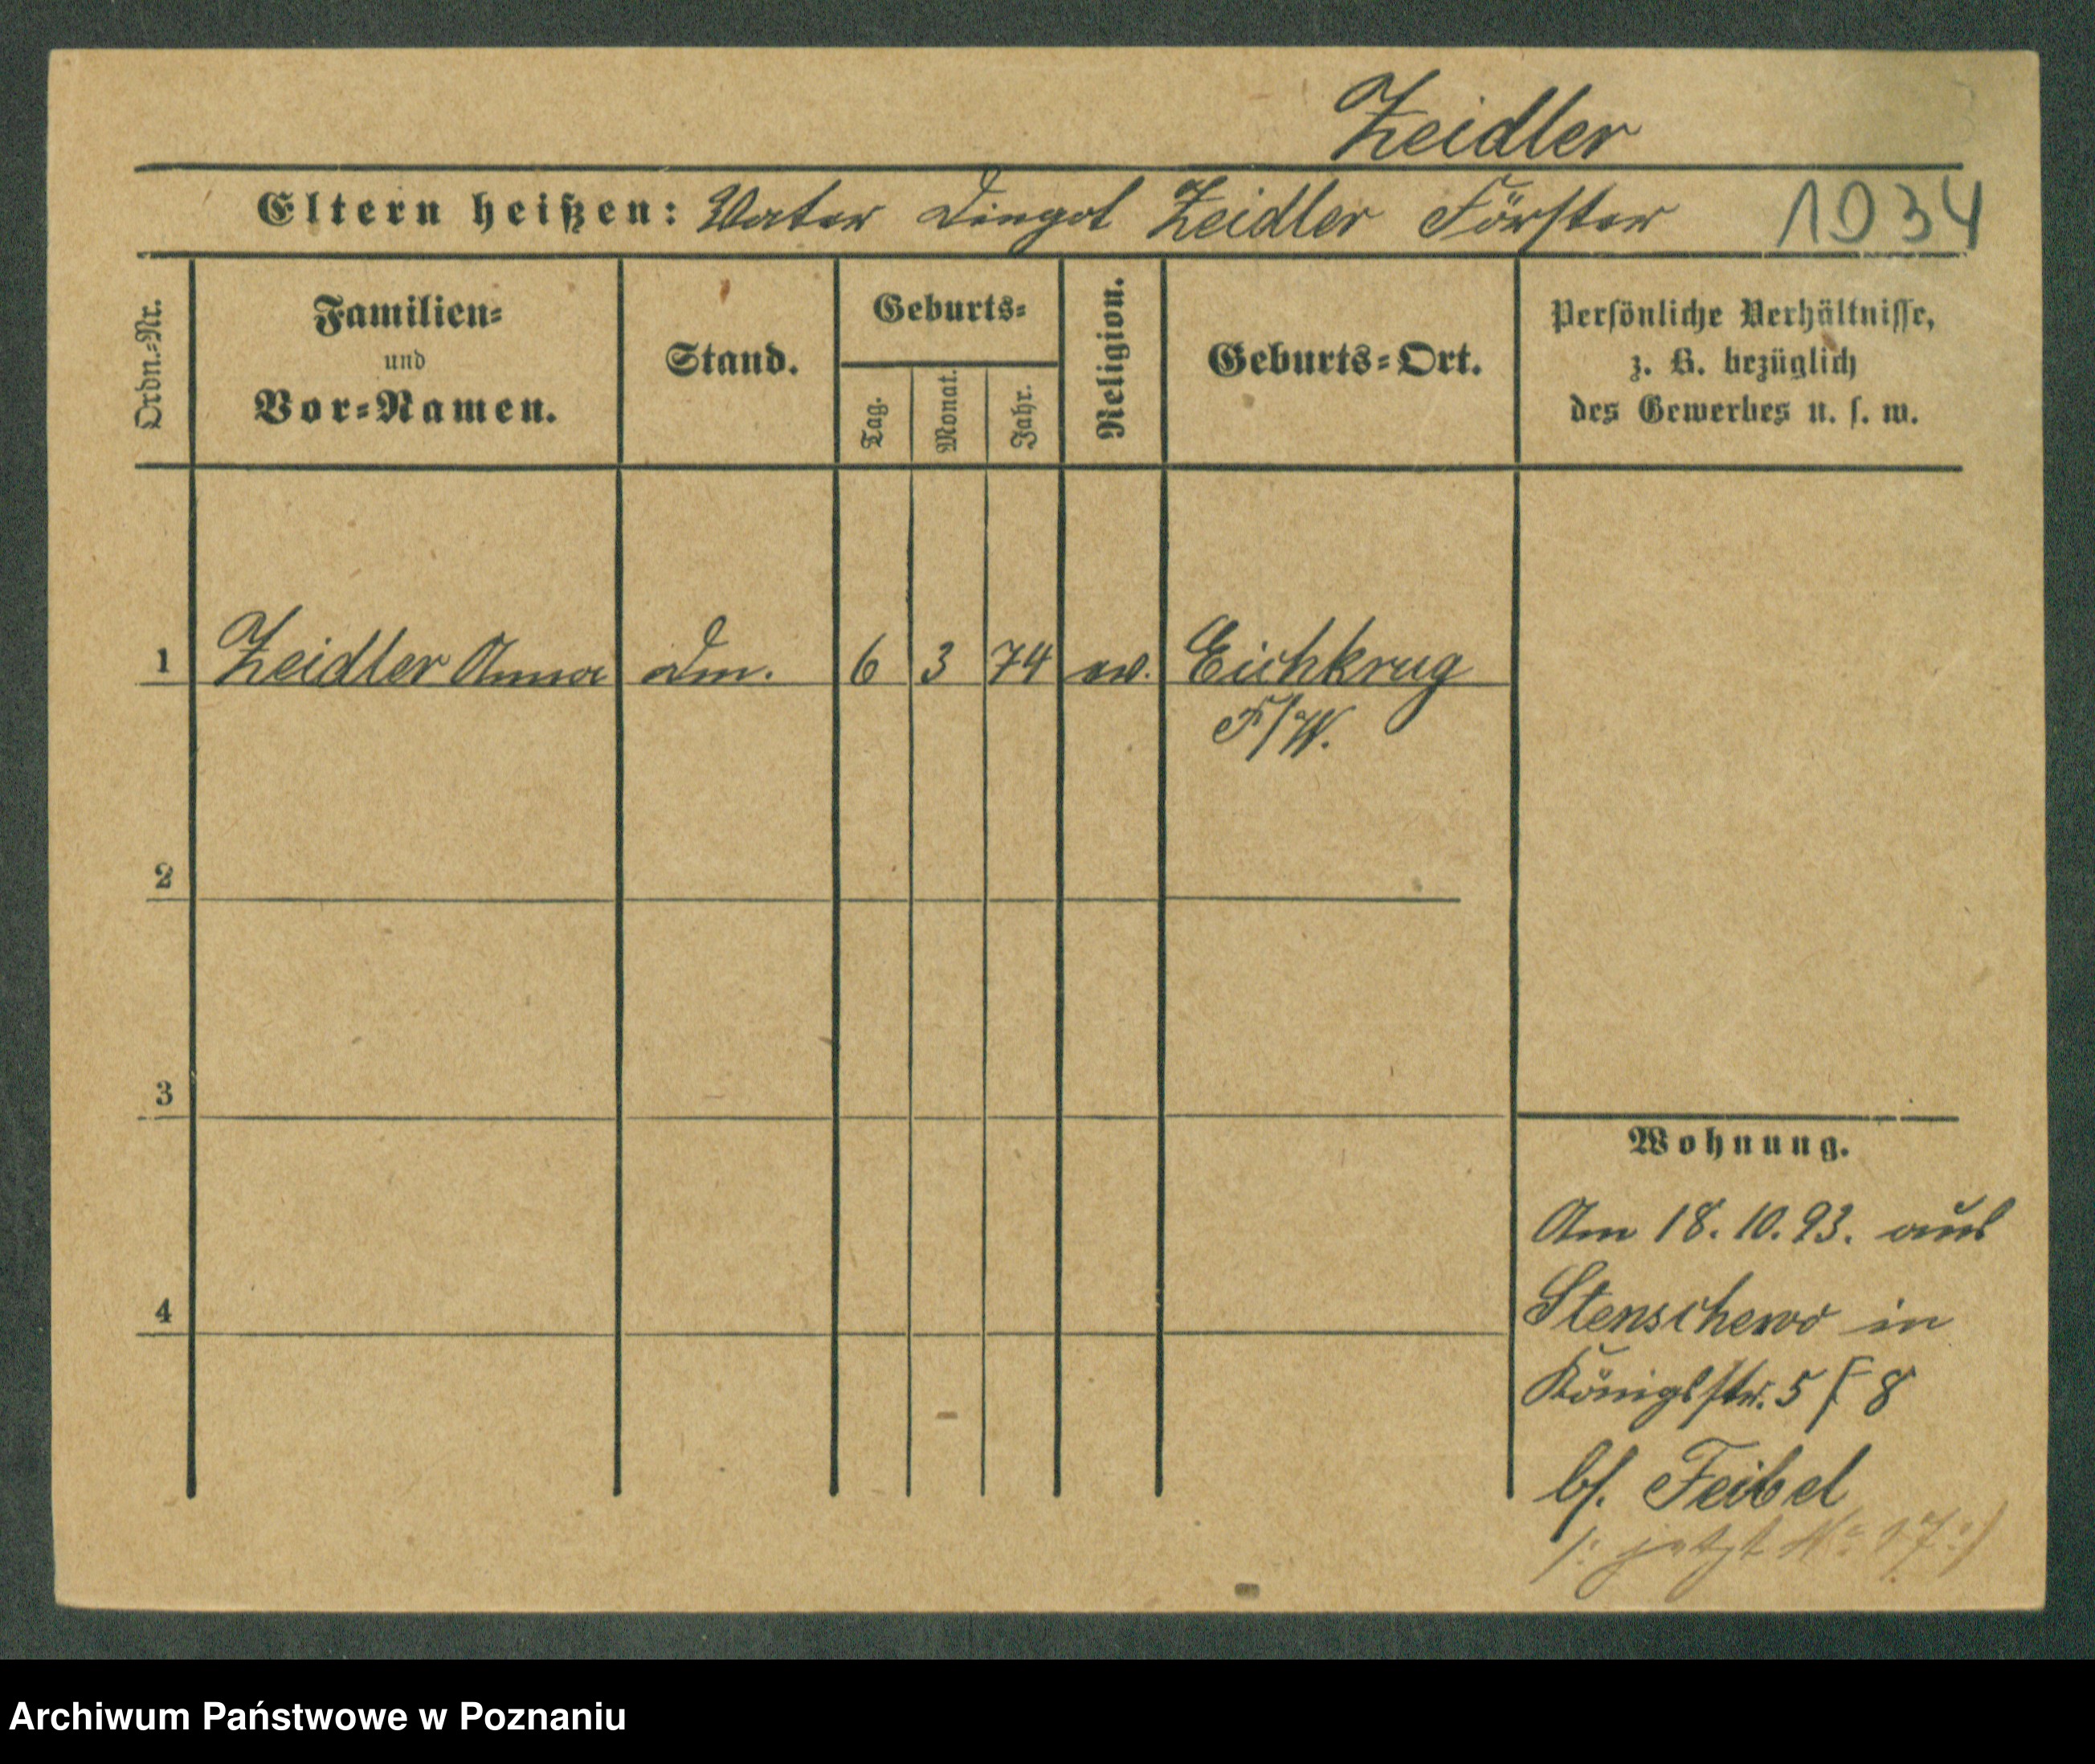 Zeidler
Eltern heißen: Vater Zeidler Förster 1034
Ordn.-Nr.
Familien-
und
Vor-Namen.
Stand.
Geburts-
Tag.
Monat.
Jahr.
Religion.
Geburts-Ort.
Persönliche Verhältnisse,
z. B. bezüglich
des Gewerbes u. s. w.
1 Zeidler Anna 6 3 74 ev. Eichkrug
F/W.
2
3
4
Wohnung.
Am 18.10.93. aus
Stenschewo in
Königsstr. 5 8
bf. Feibel
/: jetzt No 17 :/
Archiwum Państwowe w Poznaniu